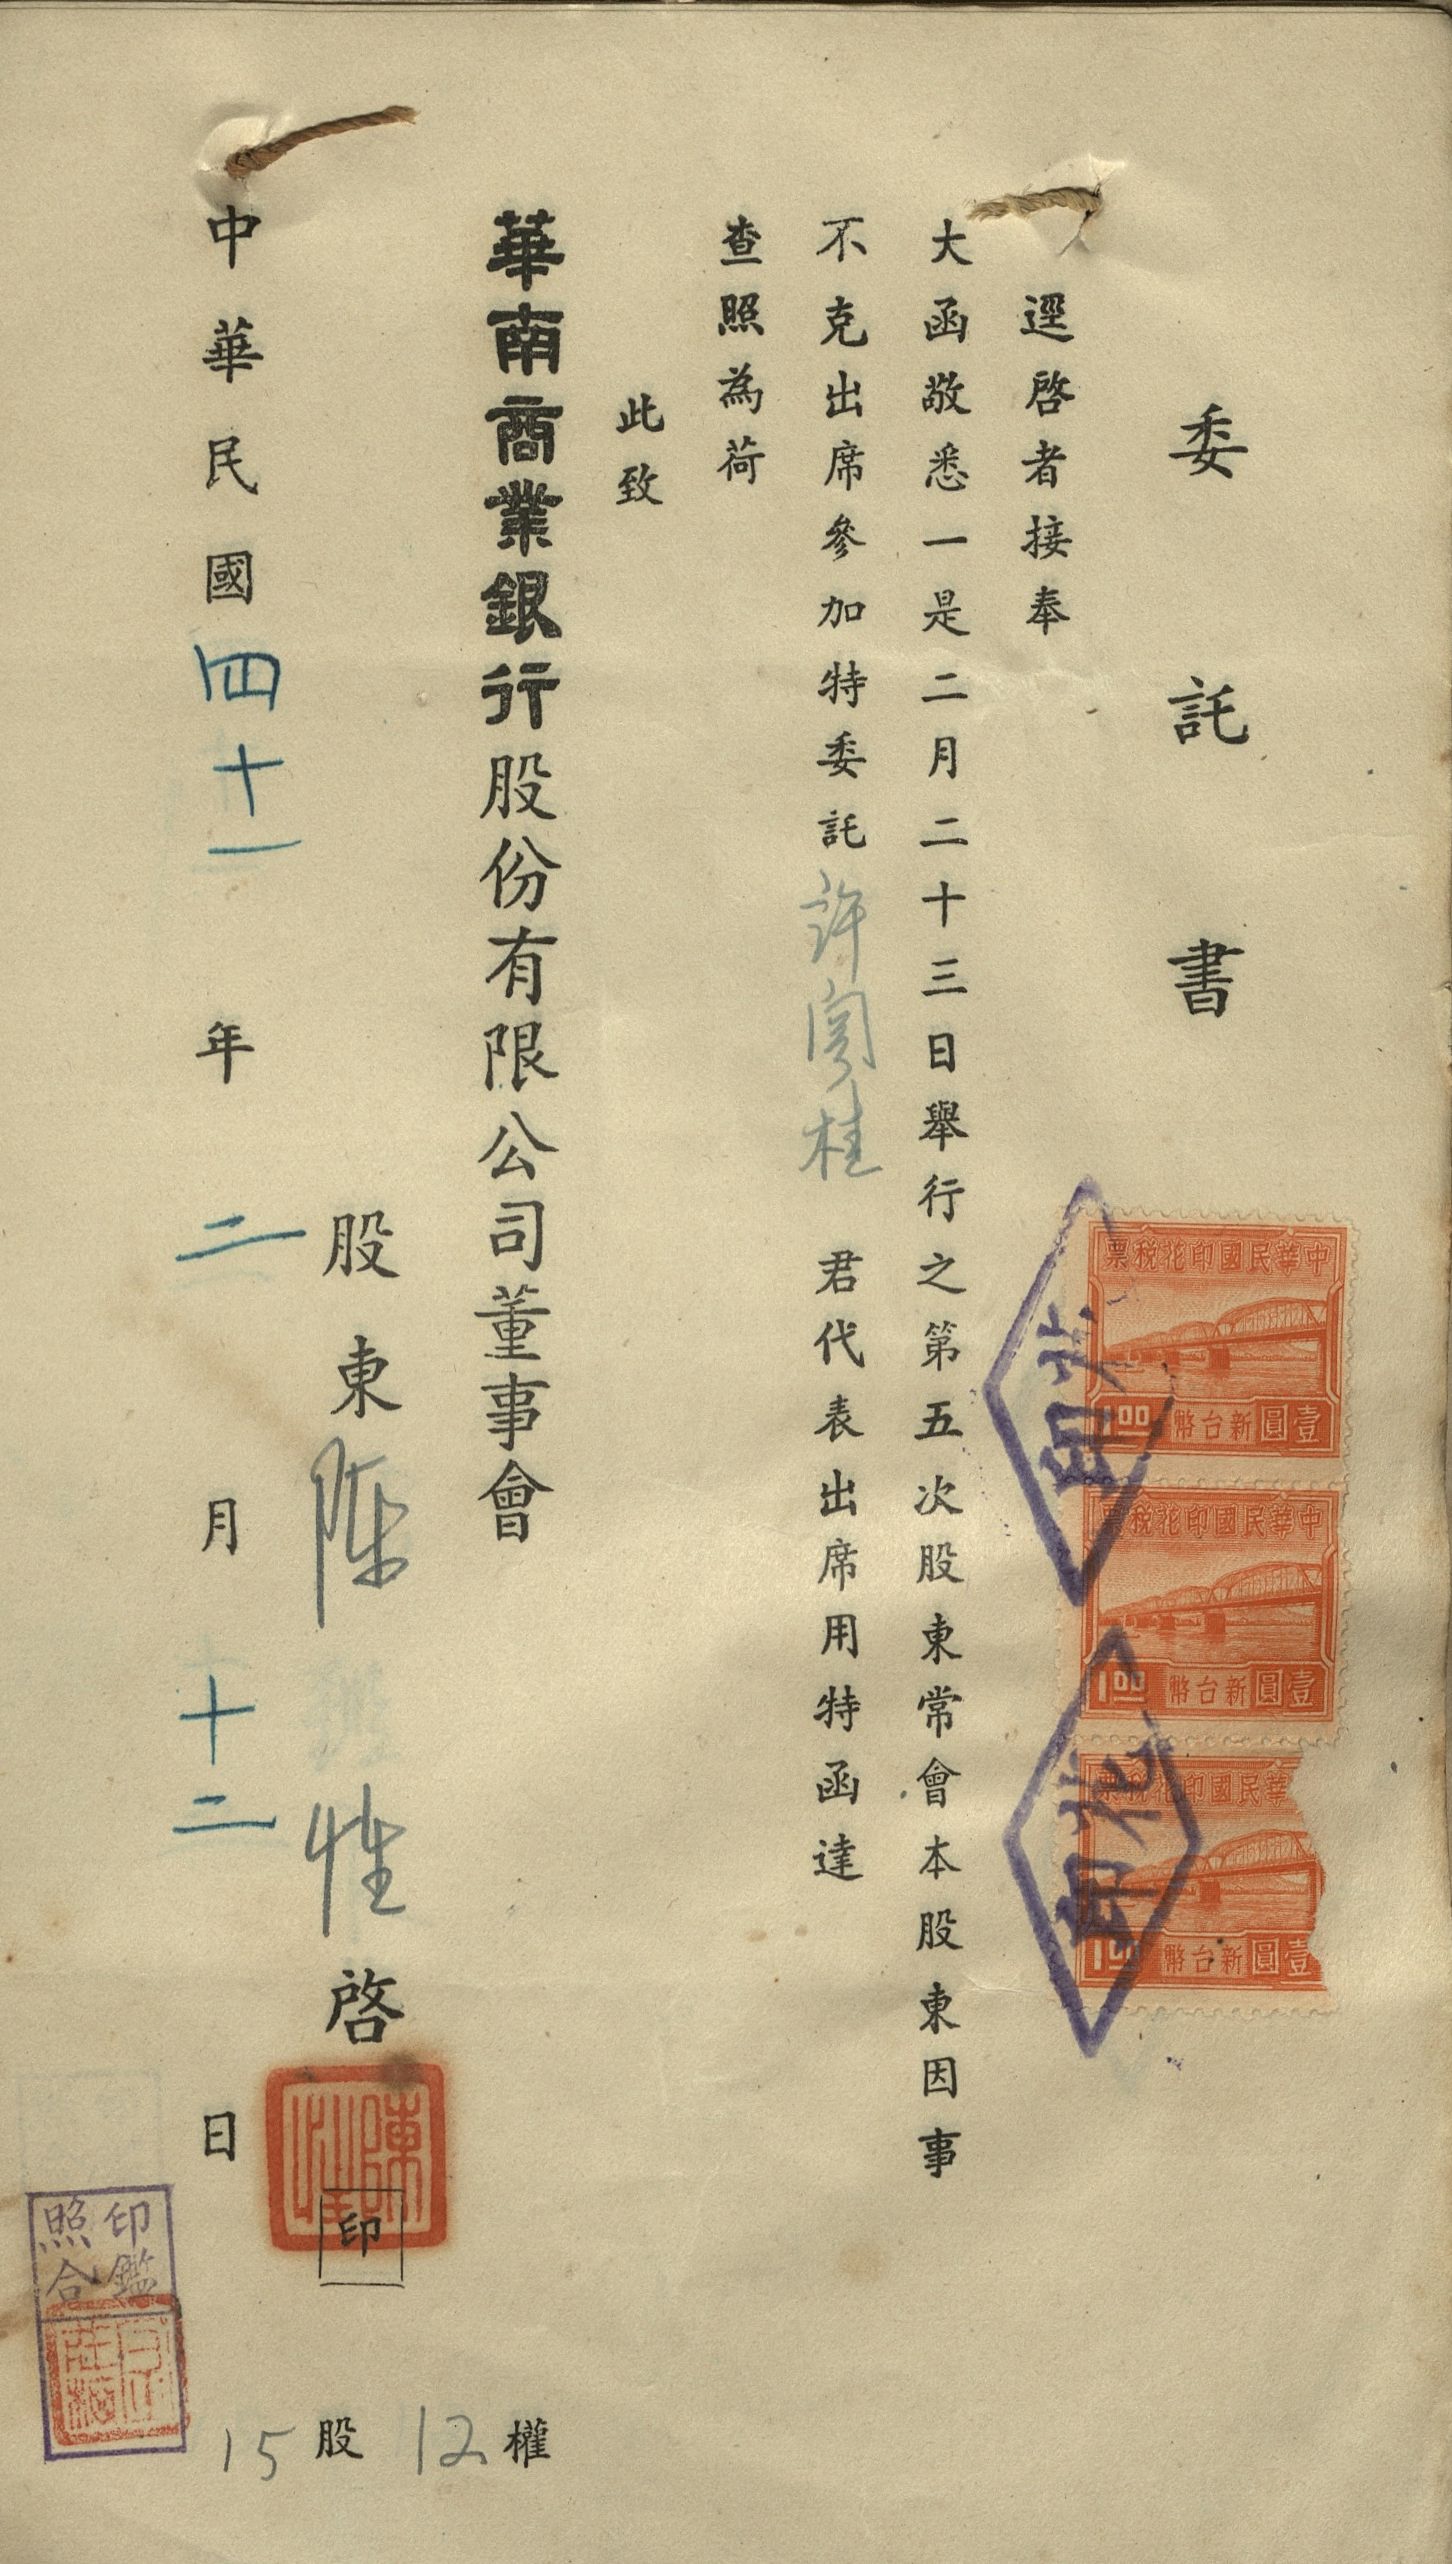 委託書
逕啓者接奉
大函敬悉一是二月二十三日舉行之第五次股東常會本股東因事
不克出席參加特委託許闊桂君代表出席用特函達
查照為荷
此致
華南商業銀行股份有限公司董事會
股東陳性啓
印
中華民國四十一年二月十二日
15股12權
中華民國印花稅票
1.00 壹圓新台幣
中華民國印花稅票
1.00 壹圓新台幣
華民國印花稅票
1.00 壹圓新台幣
印花
印花
印鑑
照合